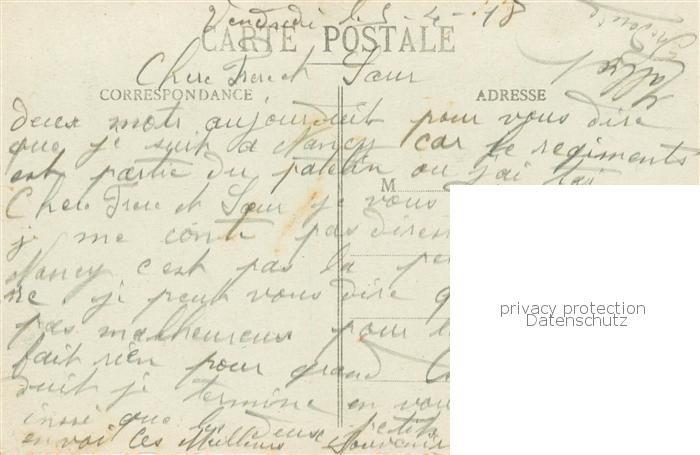 Vendredi le 5-4-18
CARTE POSTALE
Chere Frere et Sœur
CORRESPONDANCE
ADRESSE
deux mots aujourduit pour vous dire
que je suit a Nancy car le regiments
est partie du patelin ou j'ai
M
Chere Frere et Sœur je vous
je me conte pas
Nancy c'est pas la
ne je peut vous dire
pas malheureux pour
fait rien pour grand
duit je termine en vous
que les deux petits
envoi ces Meilleurs Souvenirs
privacy protection
Datenschutz